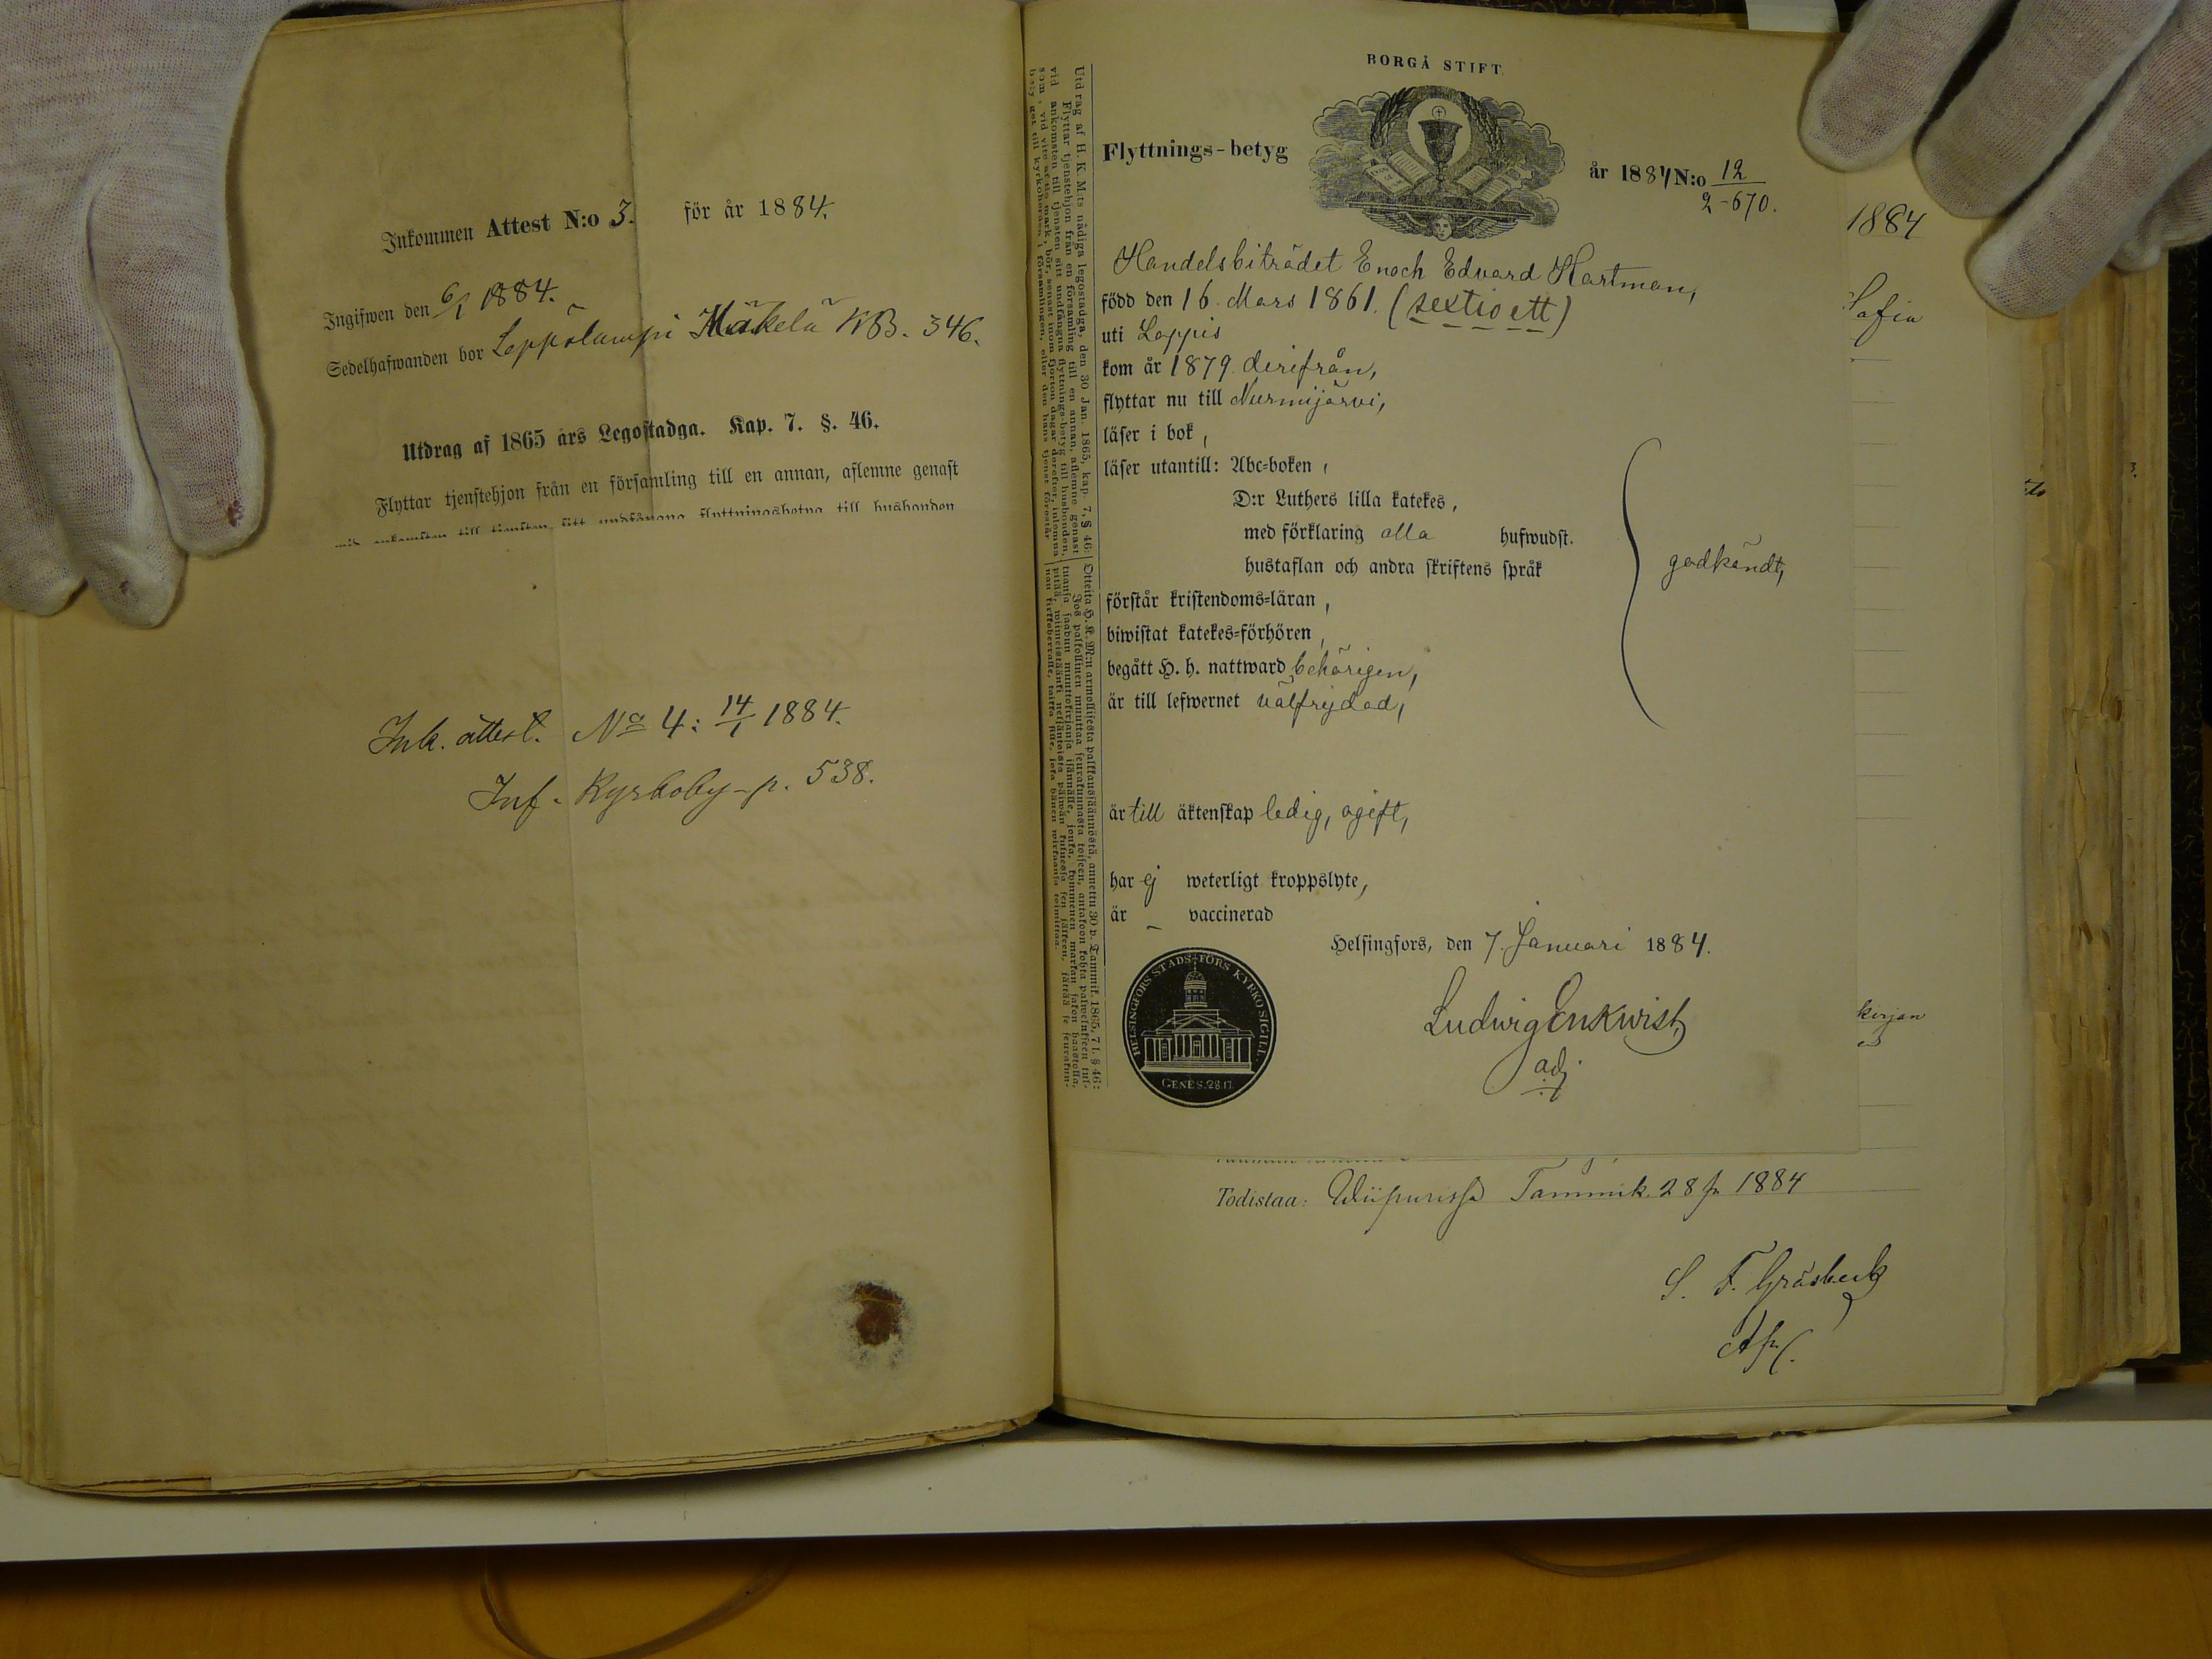 Inkommen Attest N:o 3. för år 1884.
Ingifwen den 6/1 1884.
Sedelhafwanden bor Leppälampi Mäkelä KB. 346.
Utdrag af 1865 års Legostadga. Kap. 7. §. 46.
Flyttar tjenstehjon från en församling till en annan, aflemne genast
wid ankomsten till tjensten sitt undfångna flyttningsbetyg till husbonden
Ink. attest. No 4: 14/1 1884.
Inf. Kyrkoby p. 538.
BORGÅ STIFT.
Flyttnings-betyg
år 1884 N:o 12
2-670.
Handelsbiträdet Enoch Edvard Hartman,
född den 16 Mars 1861. (sextio ett)
uti Loppis
kom år 1879 derifrån,
flyttar nu till Nurmijärvi,
läser i bok,
läser utantill: Abc-boken,
D:r Luthers lilla katekes,
med förklaring alla hufwudst.
hustaflan och andra skriftens språk
godkändt,
förstår kristendoms-läran,
biwistat katekes-förhören,
begått H. h. nattward behörigen,
är till lefwernet välfrejdad,
är till äktenskap ledig, ogift,
har ej weterligt kroppslyte,
är – vaccinerad
Helsingfors, den 7. Januari 1884.
Ludwig Enkwist,
adj
HELSINGFORS STADS-FÖRS KYRKO SIGILL.
GENES. 28.17.
Utdrag af H. K. M:ts nådiga legostadga, den 30 Jan. 1865, kap. 7, § 46:
Flyttar tjenstehjon från en församling till en annan, aflemne genast
vid ankomsten till tjensten sitt undfångna flyttnings-betyg till husbonden,
Todistaa: Wiipurissa Tammik. 28 p. 1884
1884
Sofia
kirjan